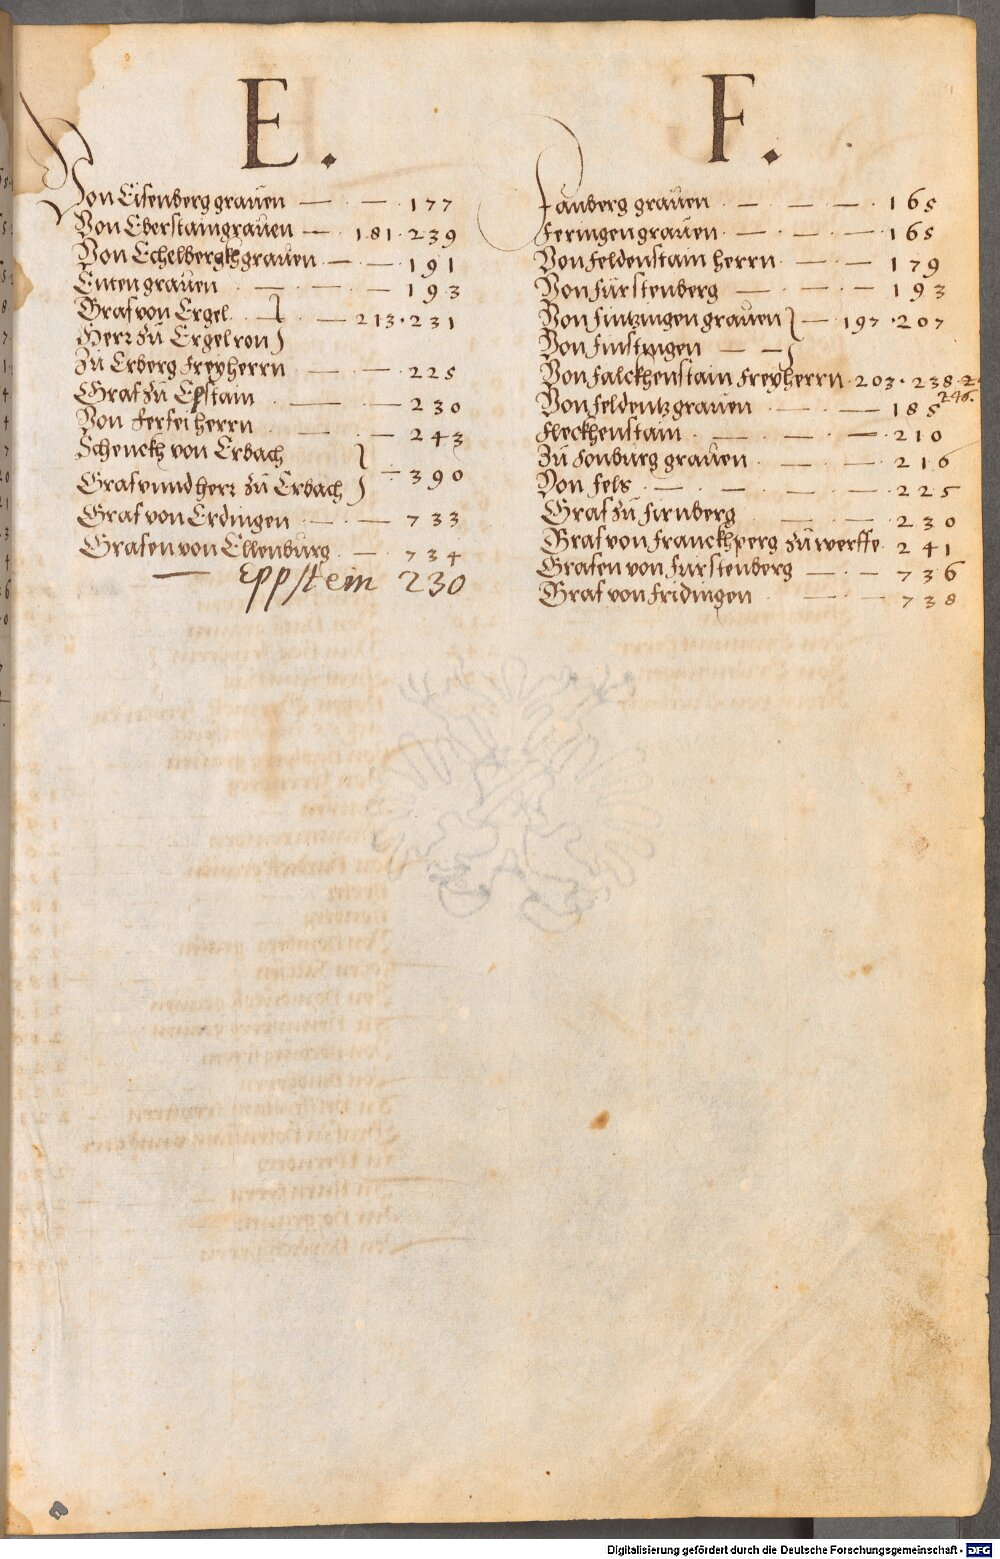 E.
Von Eisenberg grauen — 177
Von Eberstain grauen — 181 · 239
Von Echelbergkh grauen — 191
Enten grauen — 193
Graf von Ergel } — 213 · 231
Herr zu Ergel von }
Zu Erberg Freyherrn — 225
Graf zu Epstain — 230
Von herrn — 243
Schenckh von Erbach }
Graf vnnd herr zu Erbach } — 390
Graf von Erdingen — 733
Grafen von Ellenburg — 734
— Eppstein 230
F.
Fanberg grauen — 165
Feringen grauen — 165
Von Feldenstain herrn — 179
Von Fürstenberg — 193
Von Fintzingen grauen } — 197 · 207
Von Finstingen — }
Von Falckhenstain Freyherrn 203 · 238 · 2
246.
Von Feldentz grauen — 185
Fleckhenstain — 210
Zu Fonburg grauen — 216
Von Fels — 225
Graf zu Firnberg — 230
Graf von Franckhperg zu werffe 241
Grafen von Furstenberg — 736
Graf von Fridingen — 738
Digitalisierung gefördert durch die Deutsche Forschungsgemeinschaft - DFG